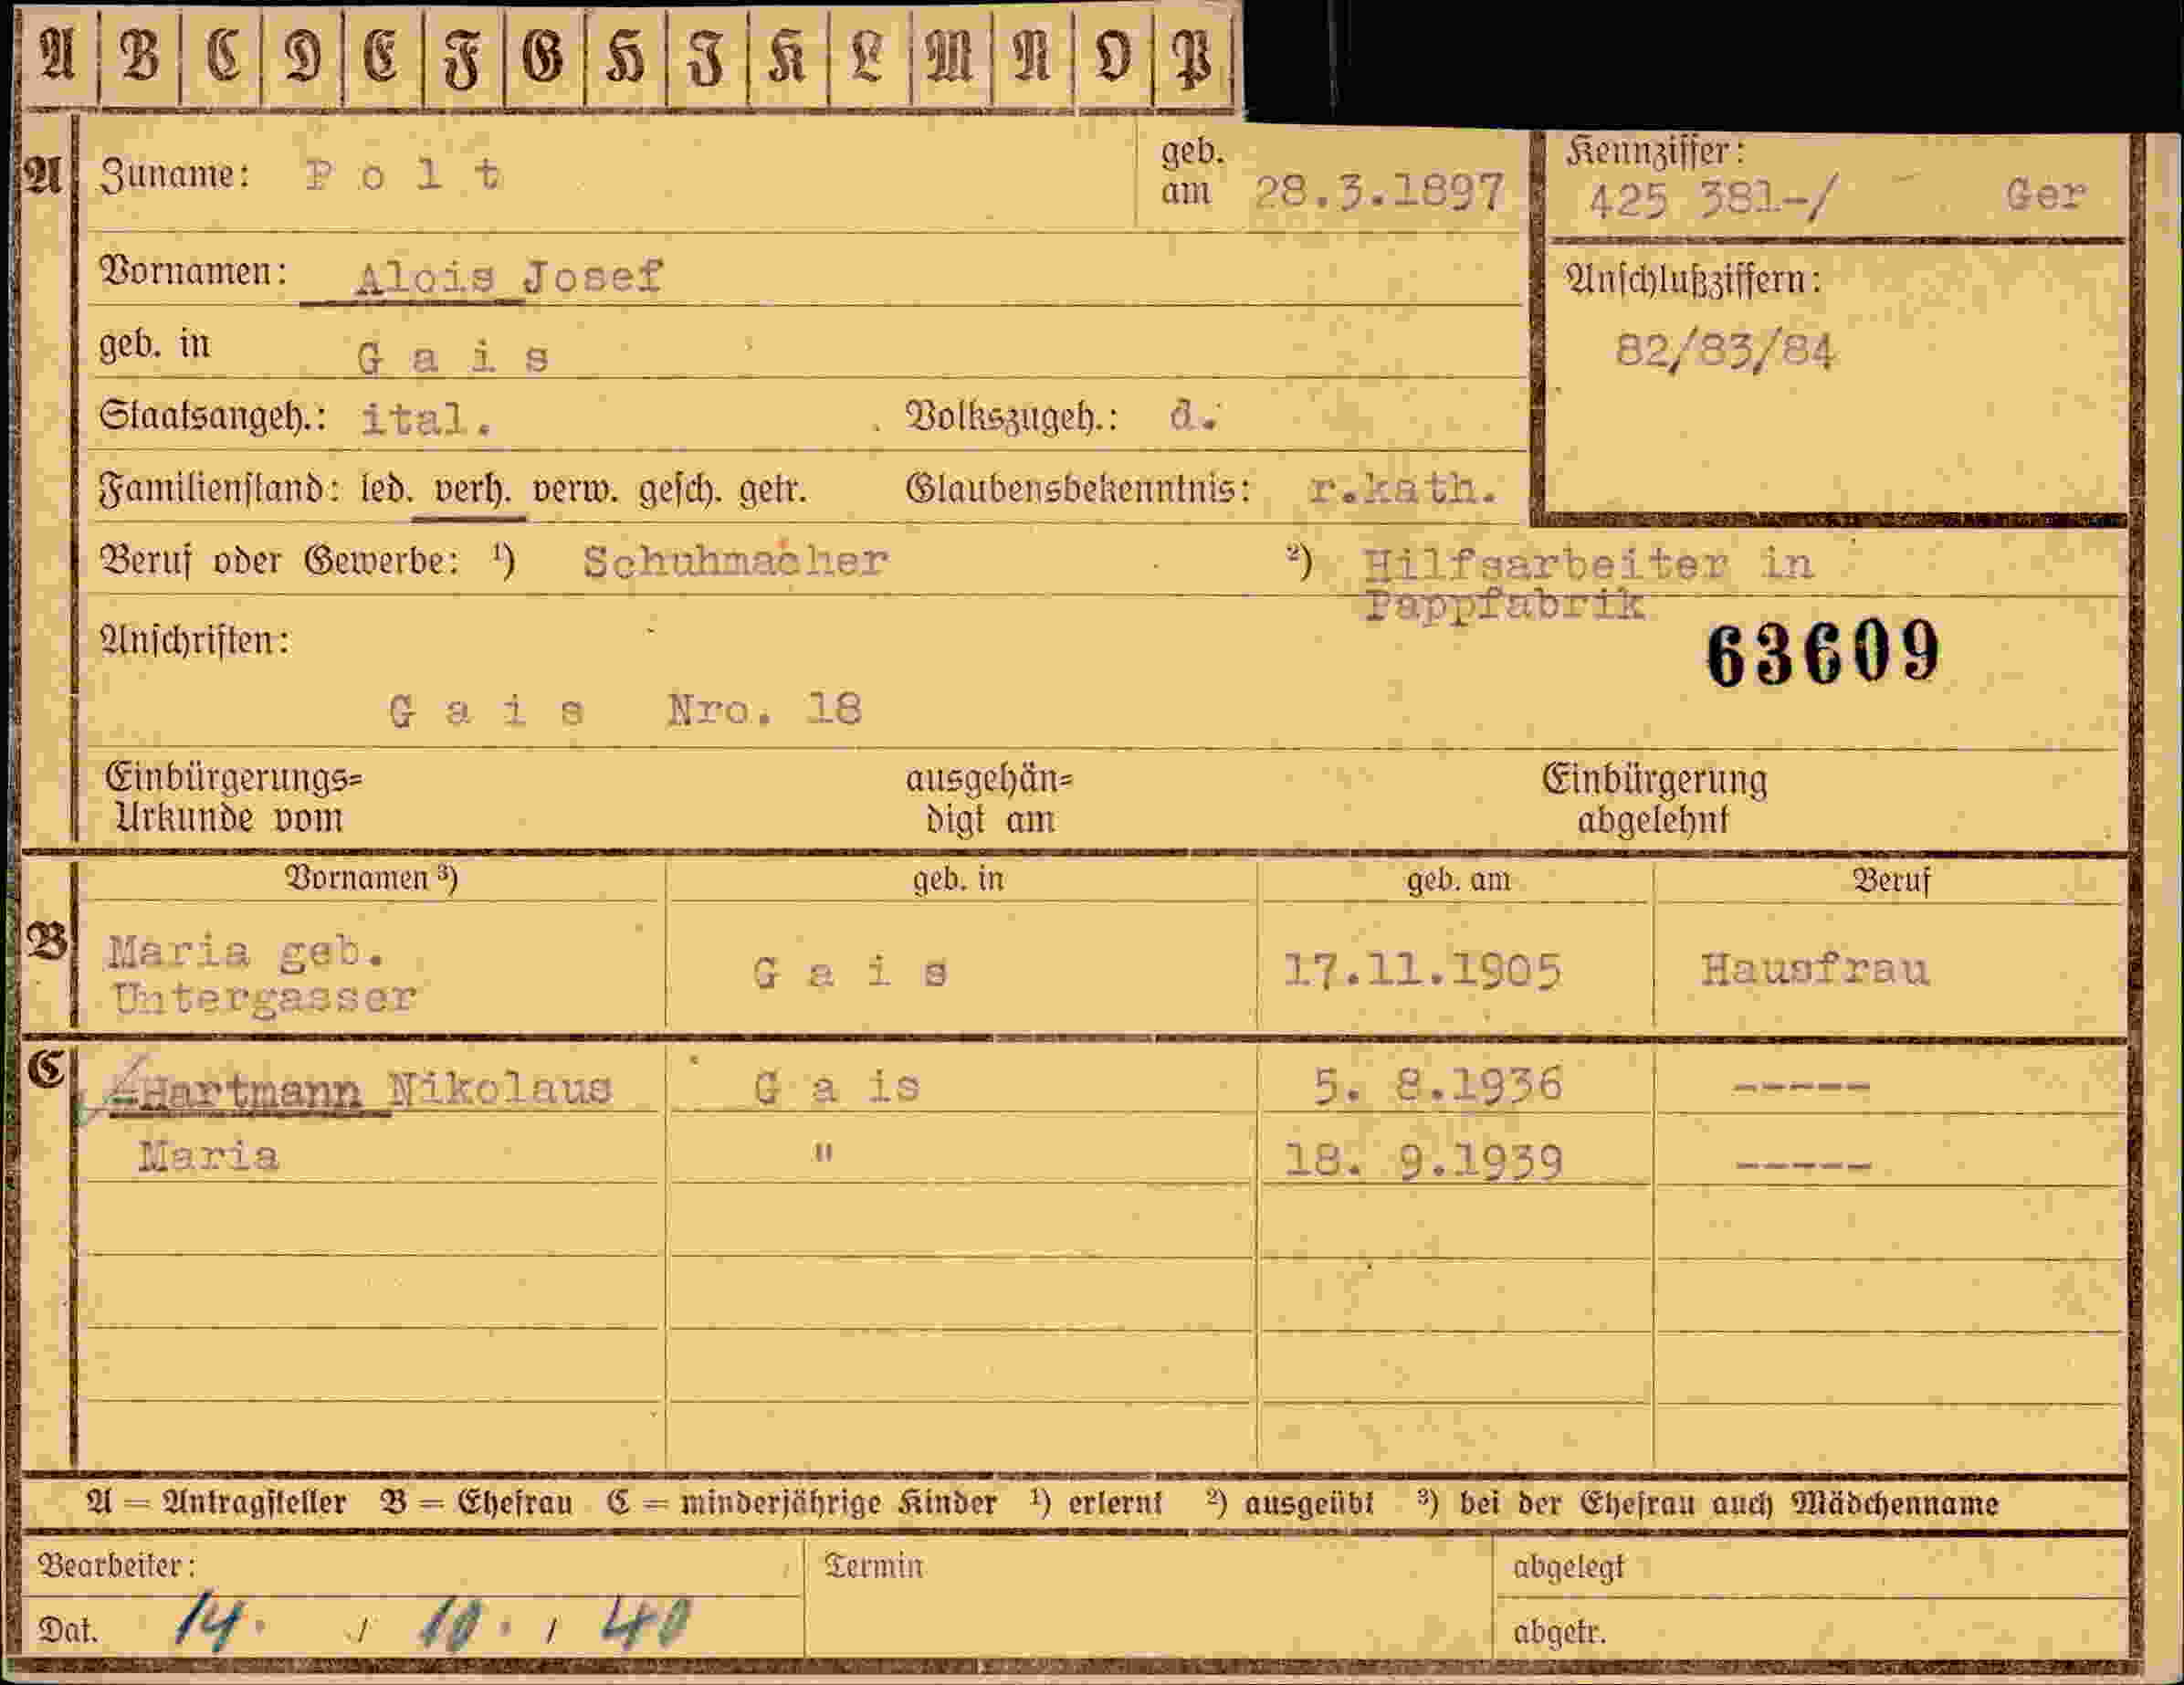 A B C D E F G H J K L M N O P
A Zuname: P o l t geb. am 28.3.1897
Kennziffer: 425 381-/ Ger
Vornamen: Alois Josef
Anschlußziffern:
geb. in G a i s
82/83/84
Staatsangeh.: ital. Volkszugeh.: d.
Familienstand: led. verh. verw. gesch. getr. Glaubensbekenntnis: r.kath.
Beruf oder Gewerbe: ¹) Schuhmacher ²) Hilfsarbeiter in
Pappfabrik
Anschriften:
63609
G a i s Nro. 18
Einbürgerungs= ausgehän= Einbürgerung
Urkunde vom digt am abgelehnt
Vornamen ³) geb. in geb. am Beruf
B Maria geb.
Untergasser G a i s 17.11.1905 Hausfrau
C Hartmann Nikolaus G a is 5. 8.1936 -----
Maria " 18. 9.1939 -----
A = Antragsteller B = Ehefrau C = minderjährige Kinder ¹) erlernt ²) ausgeübt ³) bei der Ehefrau auch Mädchenname
Bearbeiter: Termin abgelegt
Dat. 14. / 10. / 40 abgetr.